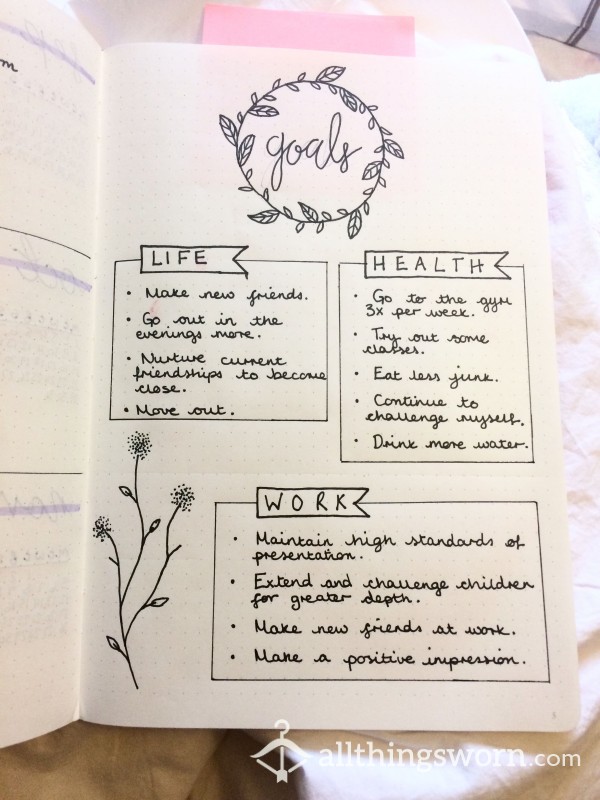 goals
LIFE
• Make new friends.
• Go out in the
evenings more.
• Nurture current
friendships to become
close.
• Move out.
HEALTH
• Go to the gym
3x per week.
• Try out some
classes.
• Eat less junk.
• Continue to
challenge myself.
• Drink more water.
WORK
• Maintain high standards of
presentation.
• Extend and challenge children
for greater depth.
• Make new friends at work.
• Make a positive impression.
allthingsworn.com